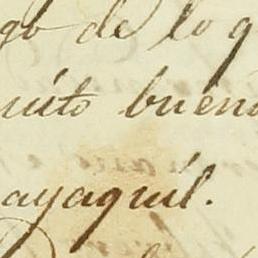 go de lo q
nuito buena
ayaquil.